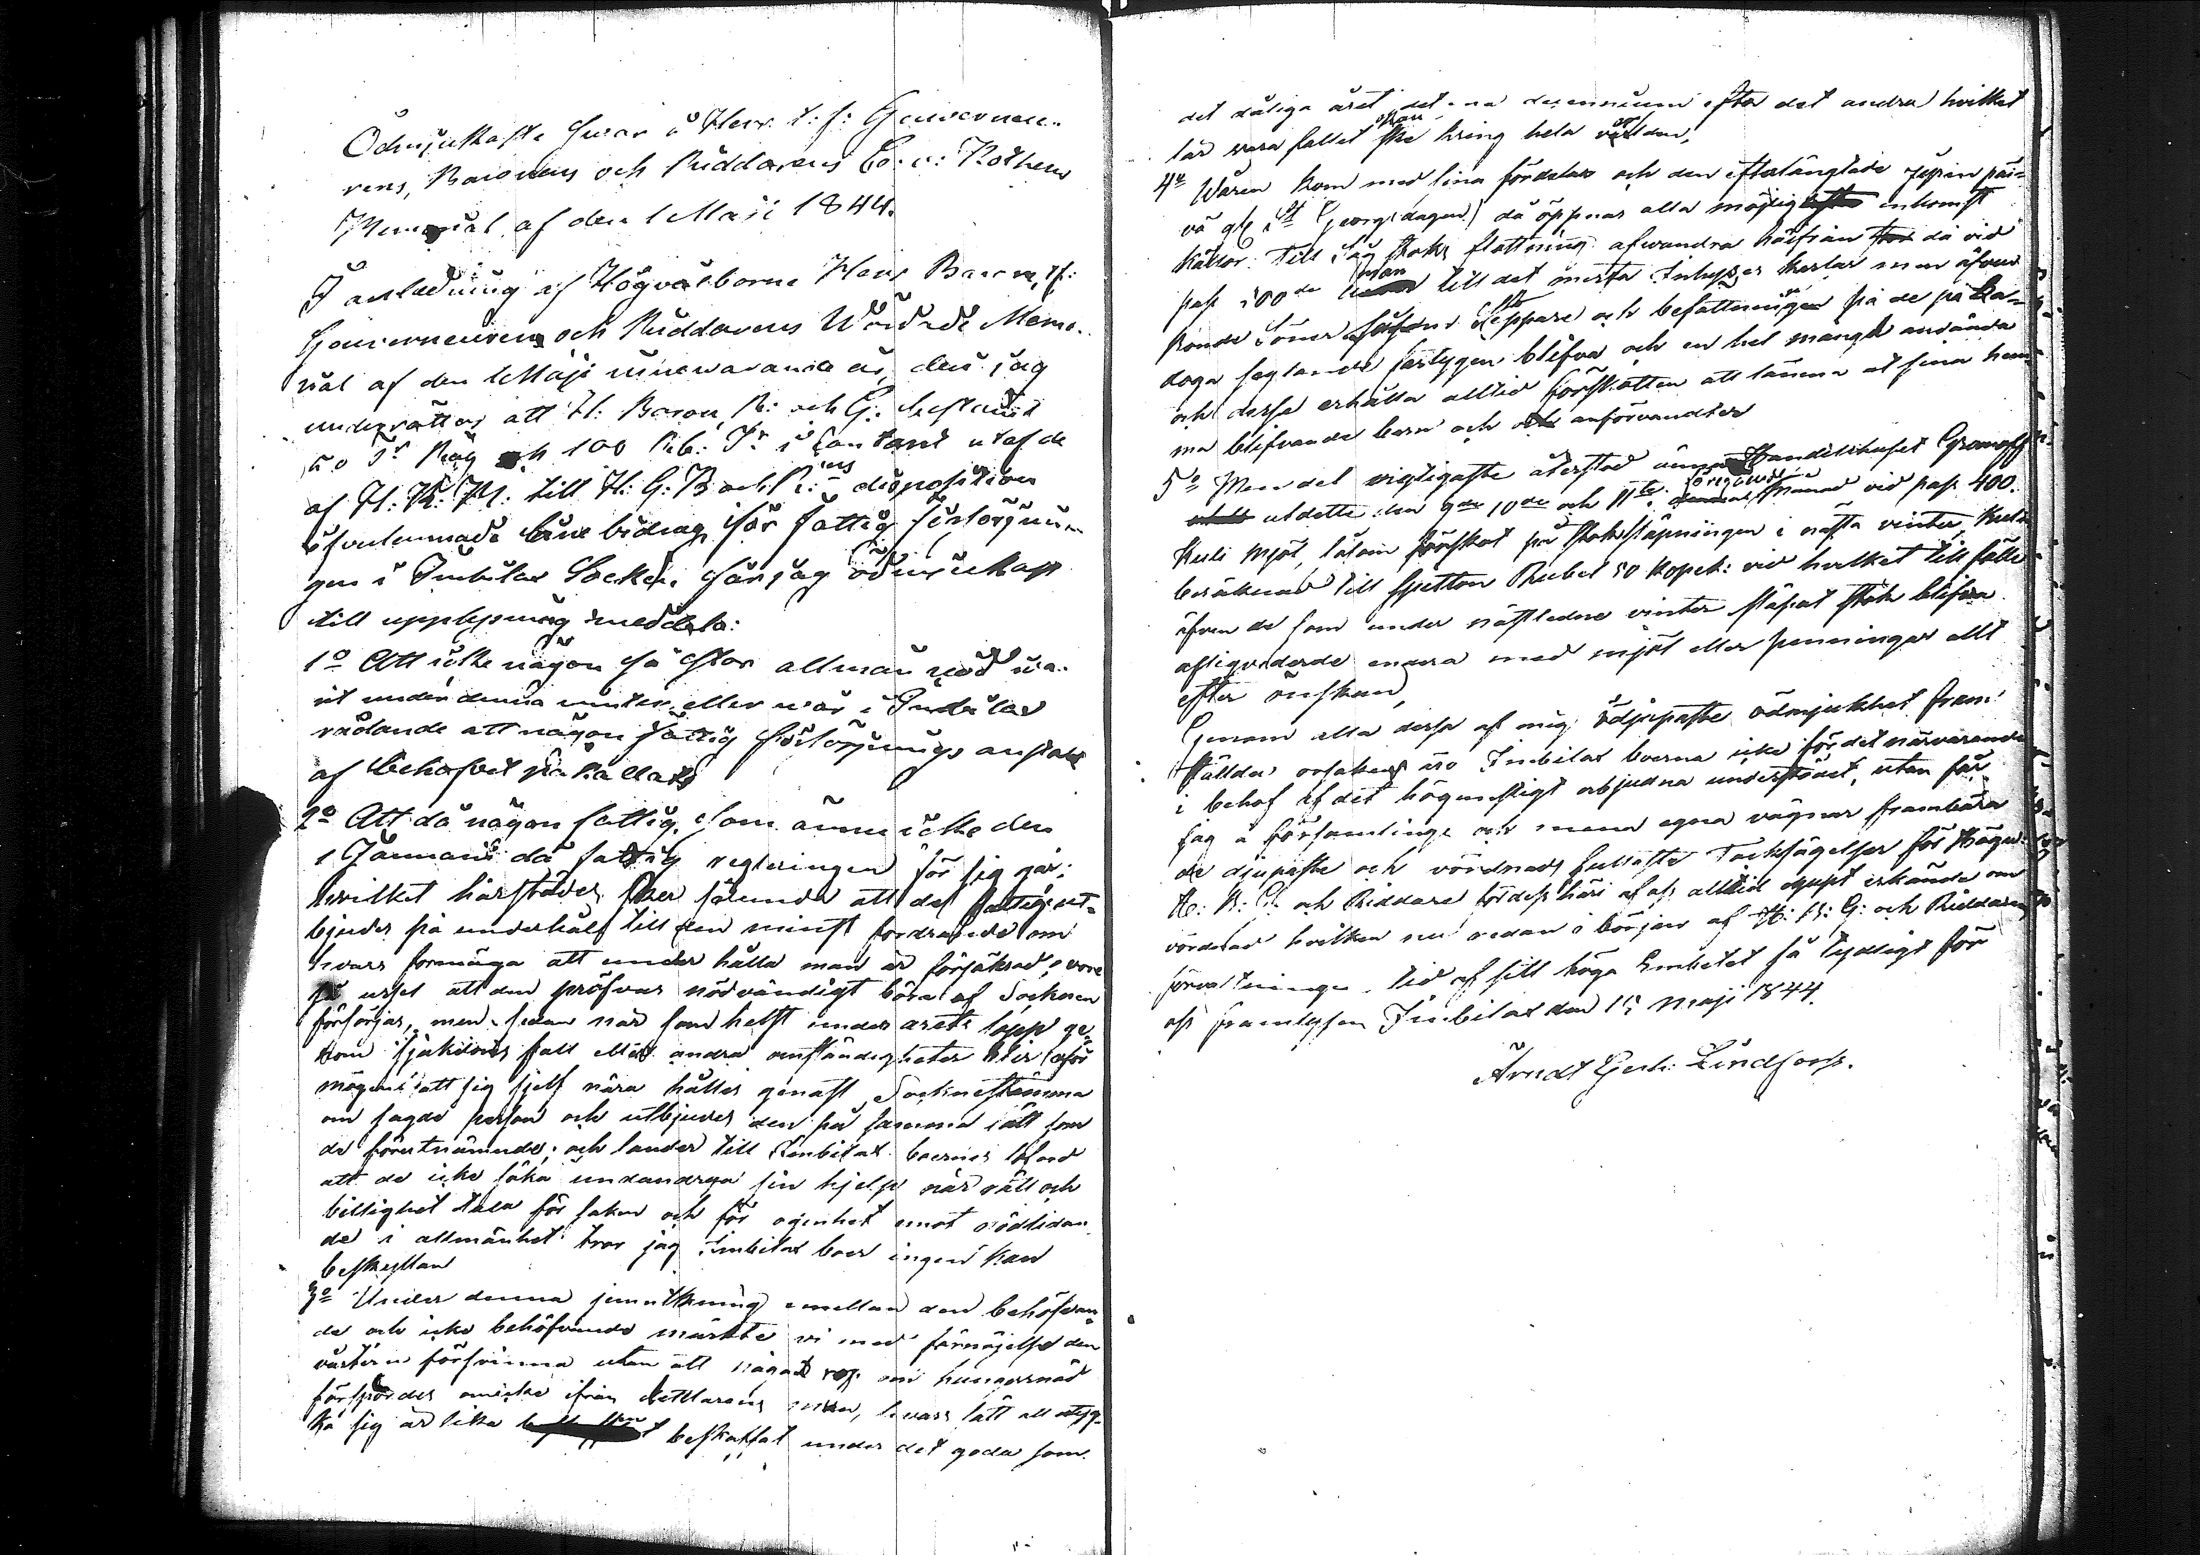 Ödmjukaste svar å Herr t: f: Gouverneu-
rens, Baronens och Riddarens Co: v: Kothens
Memorial af den 1 Maji 1844.
I anledning af Högvälborne Herr Baron, tf:
Gouverneurens och Riddarens Wördade Memo-
rial af den 1 Maji innewarande år, deri jag
underrättas att H: Baron, R: och G:
50 Tr Råg och 100 Rub: Sr i Contant utaf de
af H: K: M: till H: G: B och R:ens disposition
öfverlemnade låne bidrag för fattig försörjnin-
gen i Imbilax Socken, får jag ödmjukast
till upplysning meddela:
1o Att icke någon så stor allmän nöd wa-
rit under denna vinter eller wår i Imbilax
rådande att någon fattig försörjnings anstalt
af behofvet på kallats
2o Att då någon fattig, som ännu icke den
1 Januarii då fattig regleringen för sig går;
hvilket härstädes sker sålunda att de fattige ut-
bjudes på underhåll till den minst fordrande om
hvars förmåga att under hålla man är försäkrad, vore
så ussel att den pröfvas nödvändigt böra af Socknen
försörjas, men sedan när som helst under årets lopp ge-
nom sjukdoms fall eller andra omständigheter blir oför
mögen att sig sjelf nära hålles genast Socknestämma
om sagde person och utbjudes den på samma sätt som
de förutnämnde; och länder till Imbilax boernes loford
att de icke söka undandraga sin hjelp när rätt och
billighet tala för saken och för ogenhet emot nödlidan-
de i allmänhet tror jag Imbilax boer ingen kan
beskyllan
3o Under denna jemnkning emellan den behöfvan-
de och icke behöfvande märkte vi med förnöjelse den
vintern försvinna utan att något rop om hungersnöd
förspordes ifrån tiggarens mun, hvars sätt att uttryc-
ka sig är lika beskaffat under det goda som
det dåliga året, det ena decennium efter det andra hvilket
lär vara fallet kring hela världen,
4o Våren kom med sina fördelar och den efterlängtade
St Georgs dagen) då öppnas alla möjliga inkomst
källor: till Såg stocks flottning afvandra härifrån då vid
pass 200de man till det mesta Inhyses karlar men äfven
Bonde Söner skeppare och befattningen på de på La-
doga seglande fartygen blifva och en hel mängd använda
och dessa erhålla alltid förskotten att lämna åt sina hem-
ma blifvande barn och anförvandter
5o Men det vigtigaste återstod ännu Handelshuset Gromoff
utdelte den 9de 10de och 11te föregående Månad vid pass 400.
Kuli Mjöl, såsom förskot på stocksläpningen i nästa vinter, Kuln
beräknad till Sjetton Rubel 50 kopek: vid hvilket till fälle
äfven de som under nästledne vinter släpat stock blifva
afligviderde endera med mjöl eller penningar allt
efter önskan,
Genom alla dessa af mig i djupaste ödmjukhet fram-
ställda orsaker äro Imbilax boerna icke för det närvarande
i behof af det högunstigt erbjudna understödet, utan får
jag å församlings och mina egna vägnar frambära
de djupaste och vördnads fullaste Tacksägelser för Högw:
H: B: G: och Riddare
vårdnad hvilken nu redan i början af H: B: G: och Riddarens
förvaltnings tid af sitt höga Embetet så tydligt för
oss framlysen Imbilax den 15 Maji 1844.
Arndt Gerh: Lindfors.